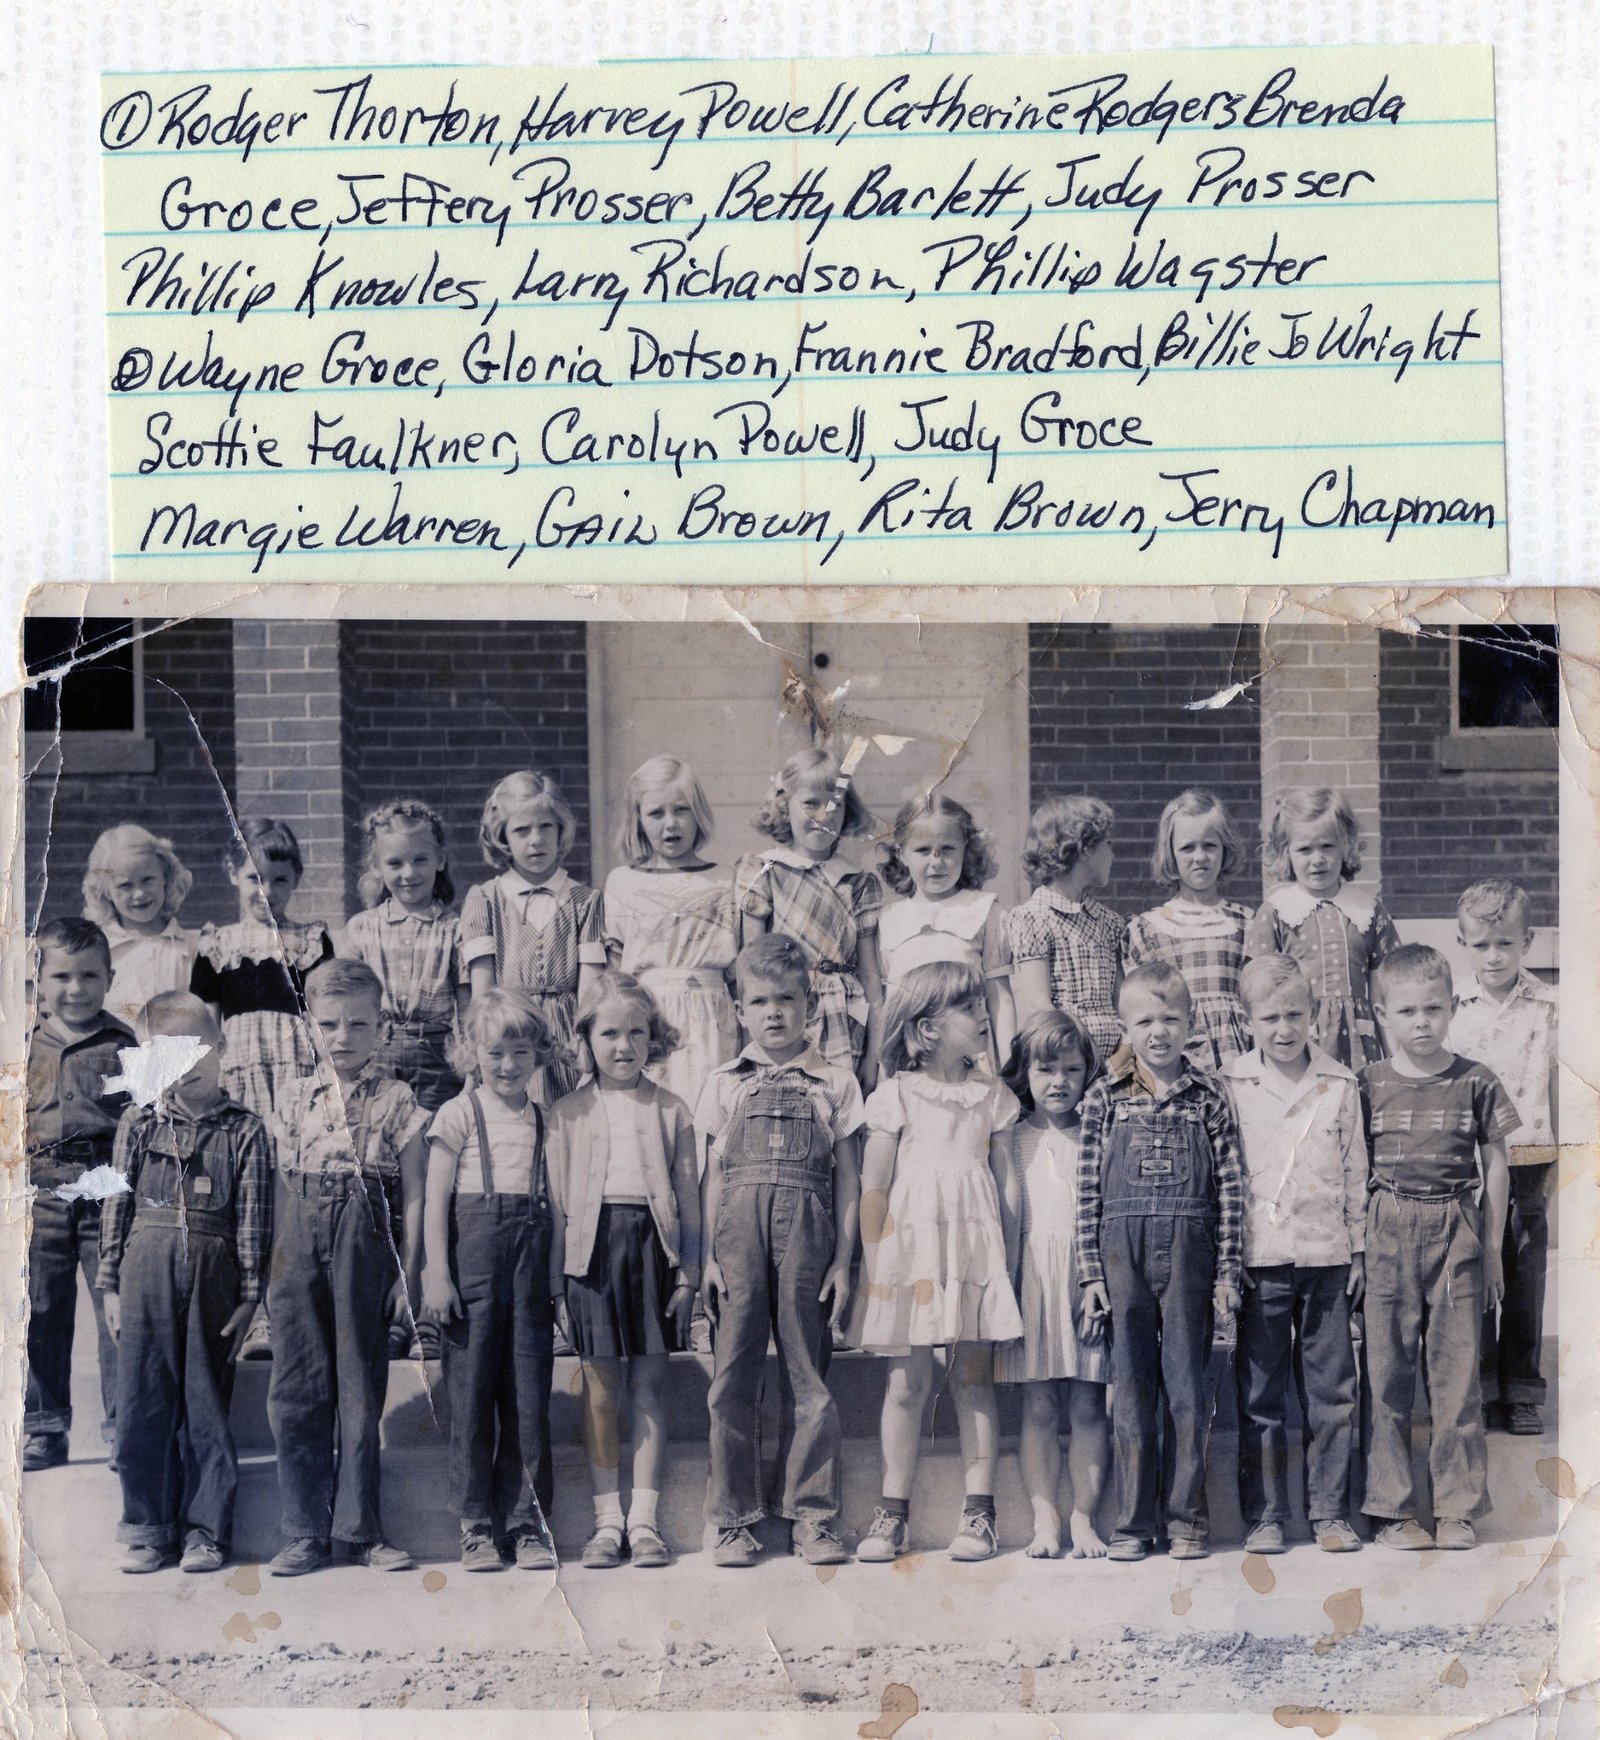 ① Rodger Thorton, Harvey Powell, Catherine Rodgers Brenda
Groce, Jeffery Prosser, Betty Barlett, Judy Prosser
Phillip Knowles, Larry Richardson, Phillip Wagster
② Wayne Groce, Gloria Dotson, Frannie Bradford, Billie Jo Wright
Scottie Faulkner, Carolyn Powell, Judy Groce
Margie Warren, GAIL Brown, Rita Brown, Jerry Chapman